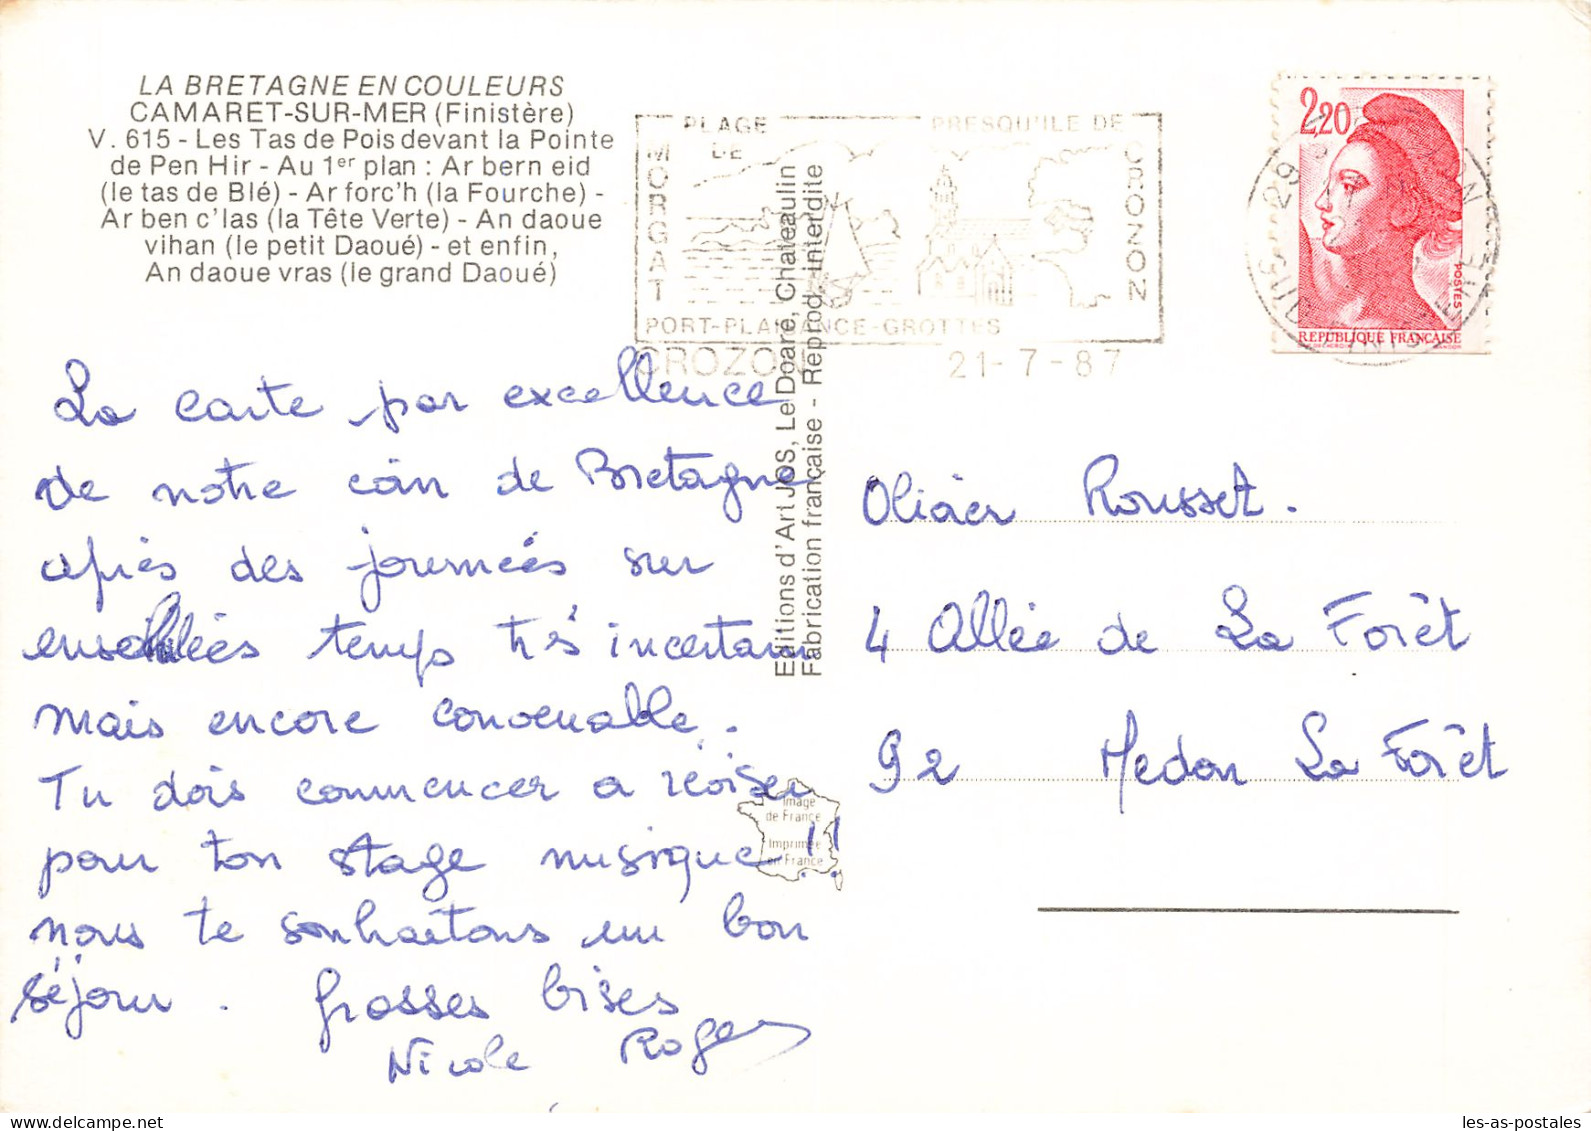 LA BRETAGNE EN COULEURS
CAMARET-SUR-MER (Finistère)
V. 615 - Les Tas de Pois devant la Pointe
de Pen Hir - Au 1er plan : Ar bern eid
(le tas de Blé) - Ar forc'h (la Fourche) -
Ar ben c'las (la Tête Verte) - An daoue
vihan (le petit Daoué) - et enfin,
An daoue vras (le grand Daoué)
PLAGE DE MORGAT
PRESQU'ILE DE CROZON
PORT-PLAISANCE-GROTTES
CROZON 21-7-87
2,20
POSTES
REPUBLIQUE FRANÇAISE
29 CROZON
FINISTERE
La carte par excellence
de notre coin de Bretagne
après des journées sur
ensoleillées temps très incertain
mais encore convenable.
Tu dois commencer a réviser
pour ton stage musique !!
nous te souhaitons un bon
séjour. Grosses bises
Nicole Roger
Editions d'Art JOS, Le Doaré, Chateaulin
Fabrication française - Reprod. interdite
Image
de France
Imprimée
en France
Olivier Rousset.
4 Allée de La Forêt
92 Medon La Forêt
les-as-postales